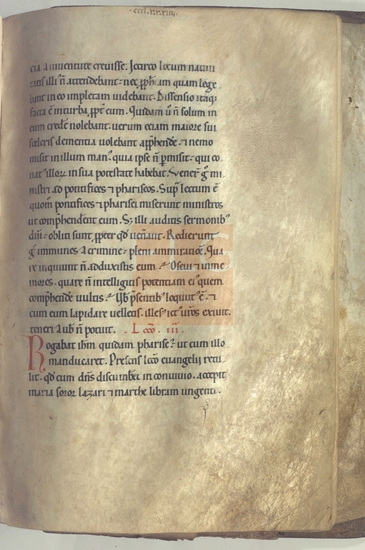 cia a iuuentute creuisse. Idcirco locum natiui
tatis illi n̄ attendebant: nec ꝓph̄iam quam lege
bant in eo impletam uidebant. Dissensio itaq;
facta ē in turba ꝓpt̄ eum. Quidam ū n̄ solum in
eum credere nolebant. uerum etiam maiore sui
sceleris dementia uolebant app̄hende. ⁊ nemo
misit in illum man᷒. quia ipse n̄ ꝑmisit. qui co
nat᷒ illoꝝ in sua potestate habebat. Venerт̄ ḡ mi
nistri ad pontifices ⁊ phariseos. Sup᷒ lectum ē
quom̄ pontifices ⁊ pharisei miserunt ministros
ut comphenderent eum. S; illi auditis sermonib᷒
dn̄i: obliti sunt ꝓpter qd̄ uen̄ant. Redierunt
ḡ immunes a crimine: pleni ammiratiōe. Qua
re inquiunt n̄ adduxistis eum
mores. quare n̄ intelligitis potentiam ei᷒ quem
comphende uultis. Vb̄ p̄sentib᷒ loquit᷑ ē. ⁊
cum eum lapidare uellent. illes᷒ ict᷒ ur̄os exiuit.
teneri a uob̄ n̄ potuit. Lcc̄o. iii.
Rogabat ih̄m quidam pharise᷒: ut cum illo
manducaret. Presens lcc̄o euangelii retu
lit. qd̄ cum dn̄s discumberet in conuiuio. accepit
maria soror lazari ⁊ marthe libram ungenti.